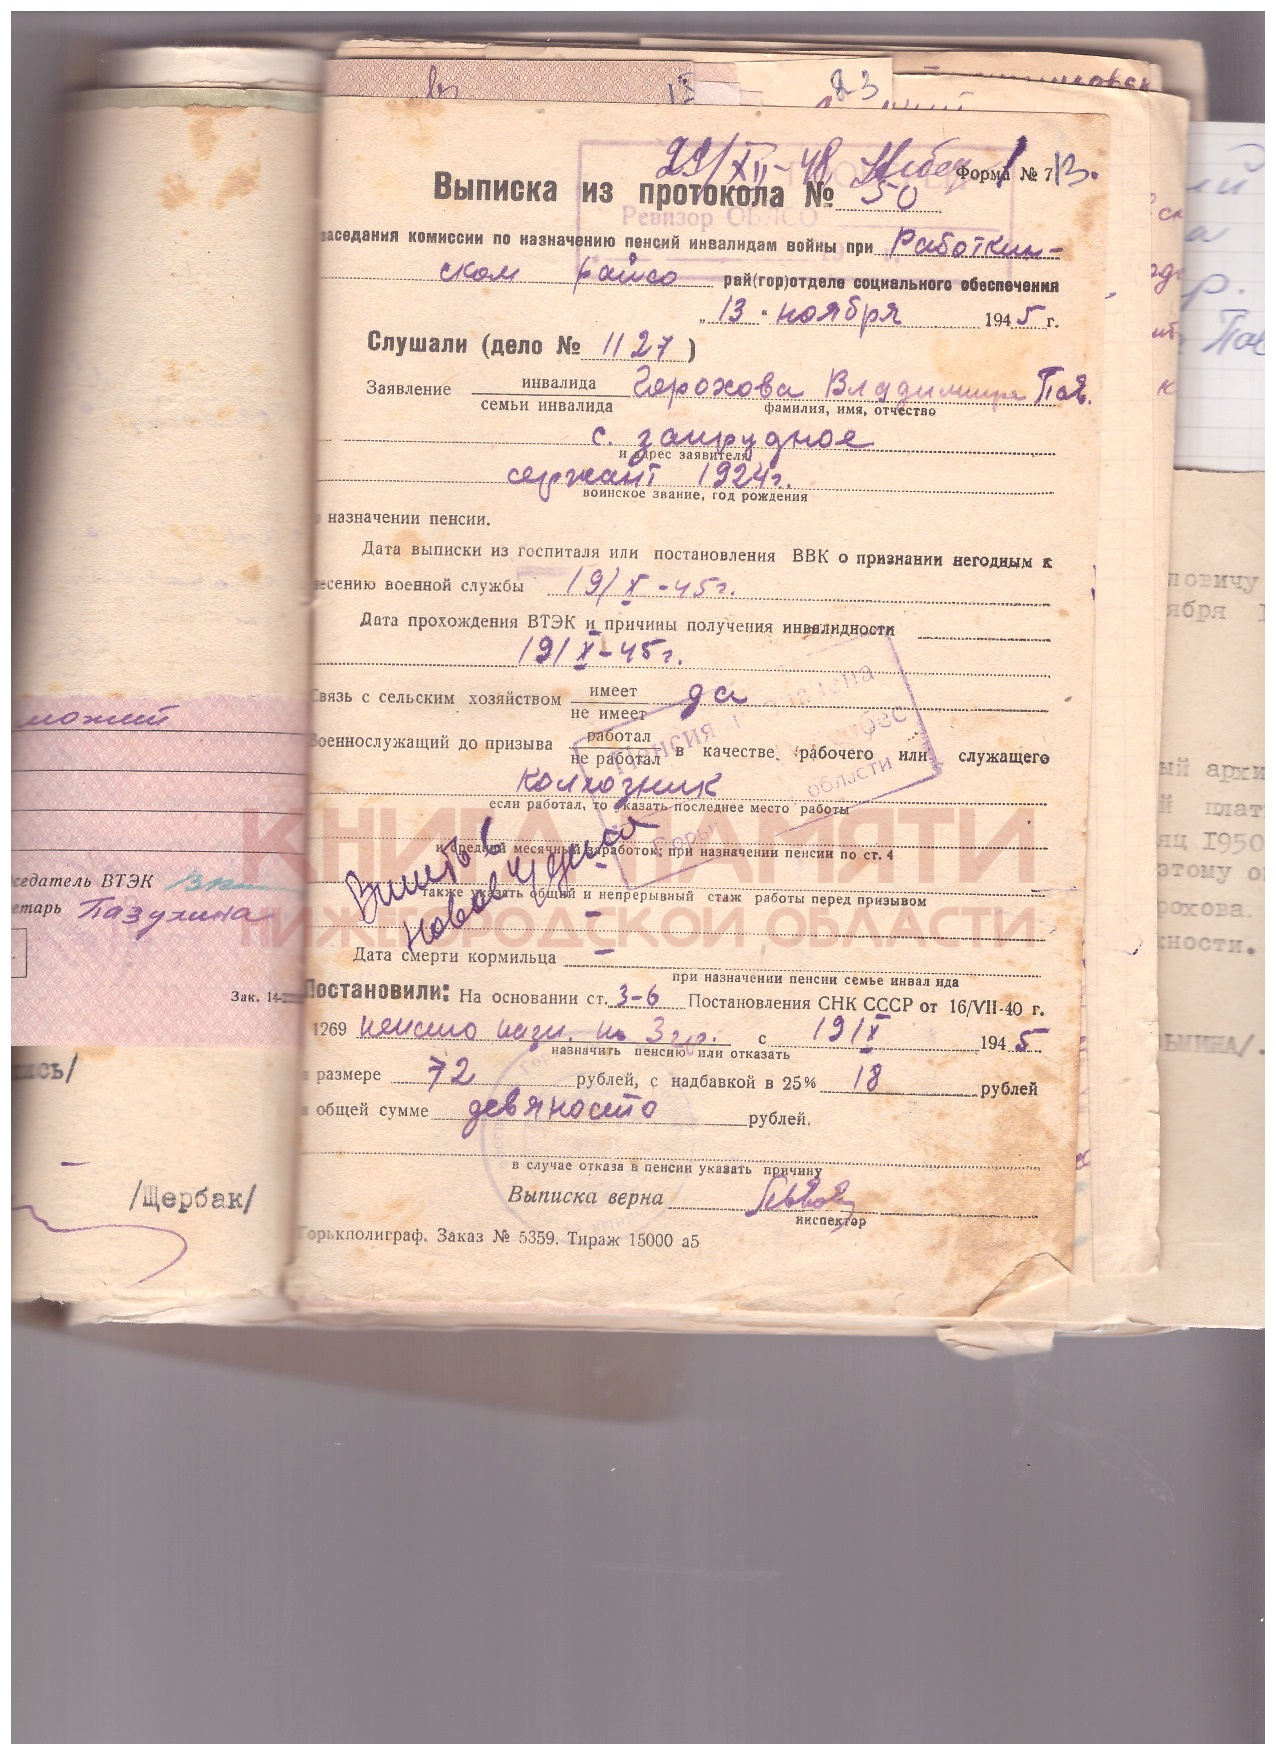 23
29/XII-48
Форма № 7
Выписка из протокола № 50
Ревизор ОБЛСО
заседания комиссии по назначению пенсий инвалидам войны при Работкин-
ском райсо рай(гор)отделе социального обеспечения
„13“ ноября 1945 г.
Слушали (дело № 1127)
Заявление инвалида Горохова Владимира Пав.
семьи инвалида фамилия, имя, отчество
с. запрудное
и адрес заявителя
сержант 1924г.
воинское звание, год рождения
о назначении пенсии.
Дата выписки из госпиталя или постановления ВВК о признании негодным к
несению военной службы 19/X-45г.
Дата прохождения ВТЭК и причины получения инвалидности
19/X-45г.
Связь с сельским хозяйством имеет да
не имеет
Военнослужащий до призыва работал в качестве рабочего или служащего
не работал
колхозник
если работал, то указать последнее место работы
и средний месячный заработок; при назначении пенсии по ст. 4
также указать общий и непрерывный стаж работы перед призывом
Дата смерти кормильца –
при назначении семье инвалида
Постановили: На основании ст. 3-6 Постановления СНК СССР от 16/VII-40 г.
1269 пенсию назн. по 3 гр. с 19/X 1945
назначить пенсию или отказать
в размере 72 рублей, с надбавкой в 25% 18 рублей
в общей сумме девяносто рублей.
в случае отказа в пенсии указать причину
Выписка верна
инспектор
Горькполиграф. Заказ № 5359. Тираж 15000 а5
Пенсия
области
КНИГА ПАМЯТИ
НИЖЕГОРОДСКОЙ ОБЛАСТИ
седатель ВТЭК
етарь Пазухина
Зак. 14-
/Щербак/
ловичу
ября
ый архи
й плат
яц 1950
этому о
рохова.
ности.
ЬМИНА/.